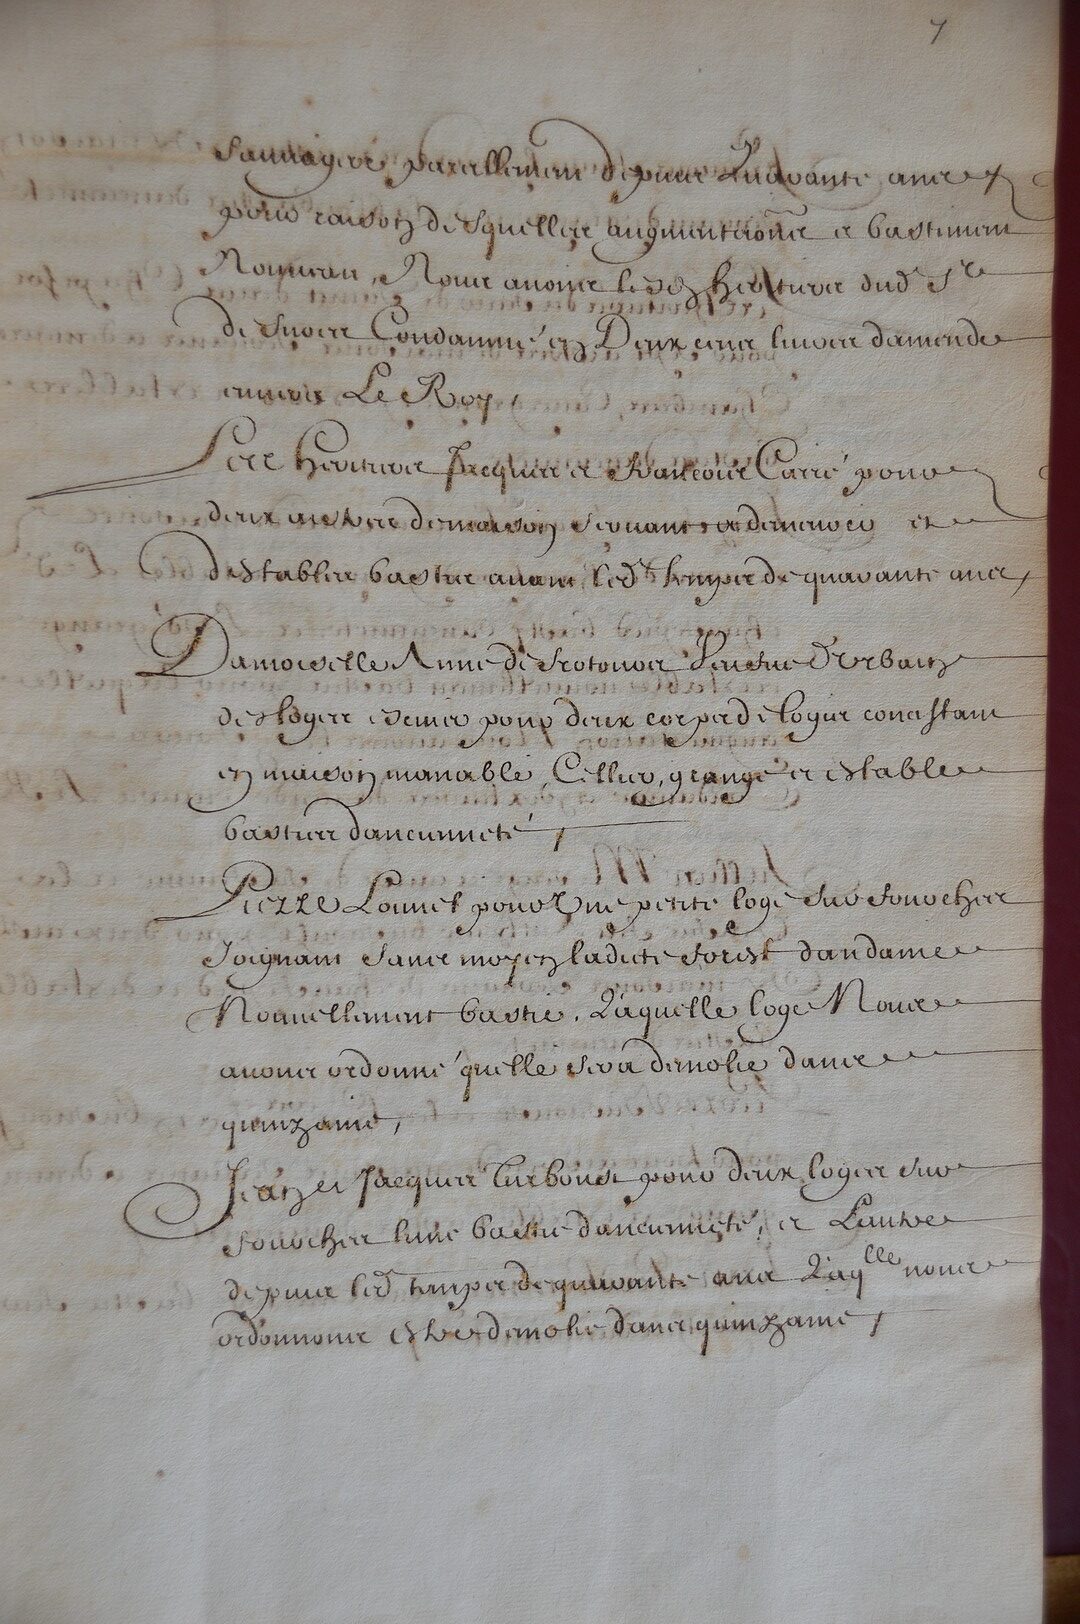 7
sauvagere pareillement depuis Quarante ans
pour raison desquelles augmentaõns et bastimens
Nouveau, Nous avons lesd heritiers dud Sr
de Suoere Condamné en Deux cens livres damende
envers Le Roy
Les heritiers Jacques et Francois Carré pour
deux autres de maison servant a demeurer et
destables bastis avant led temps de quarante ans,
Damoiselle Anne de Frotouer Veufue D'Urbain
de logere pour deux corps de logis consistans
en maison manable, Cellier, grange et estable
bastis danciennete,
Pierre Louvel pour Une petite loge sur fourches
Joignant sans moyen ladicte forest dandaine
Nouvellement bastie, Laquelle loge Nous
avons ordonné quelle sera demolie dans
quinzaine,
Jean et Jacques Turboust pour deux loges sur
fourches lune bastie danciennete, et Lautre
depuis led temps de quarante ans Laqlle nous
ordonnons estre demolie dans quinzaine,